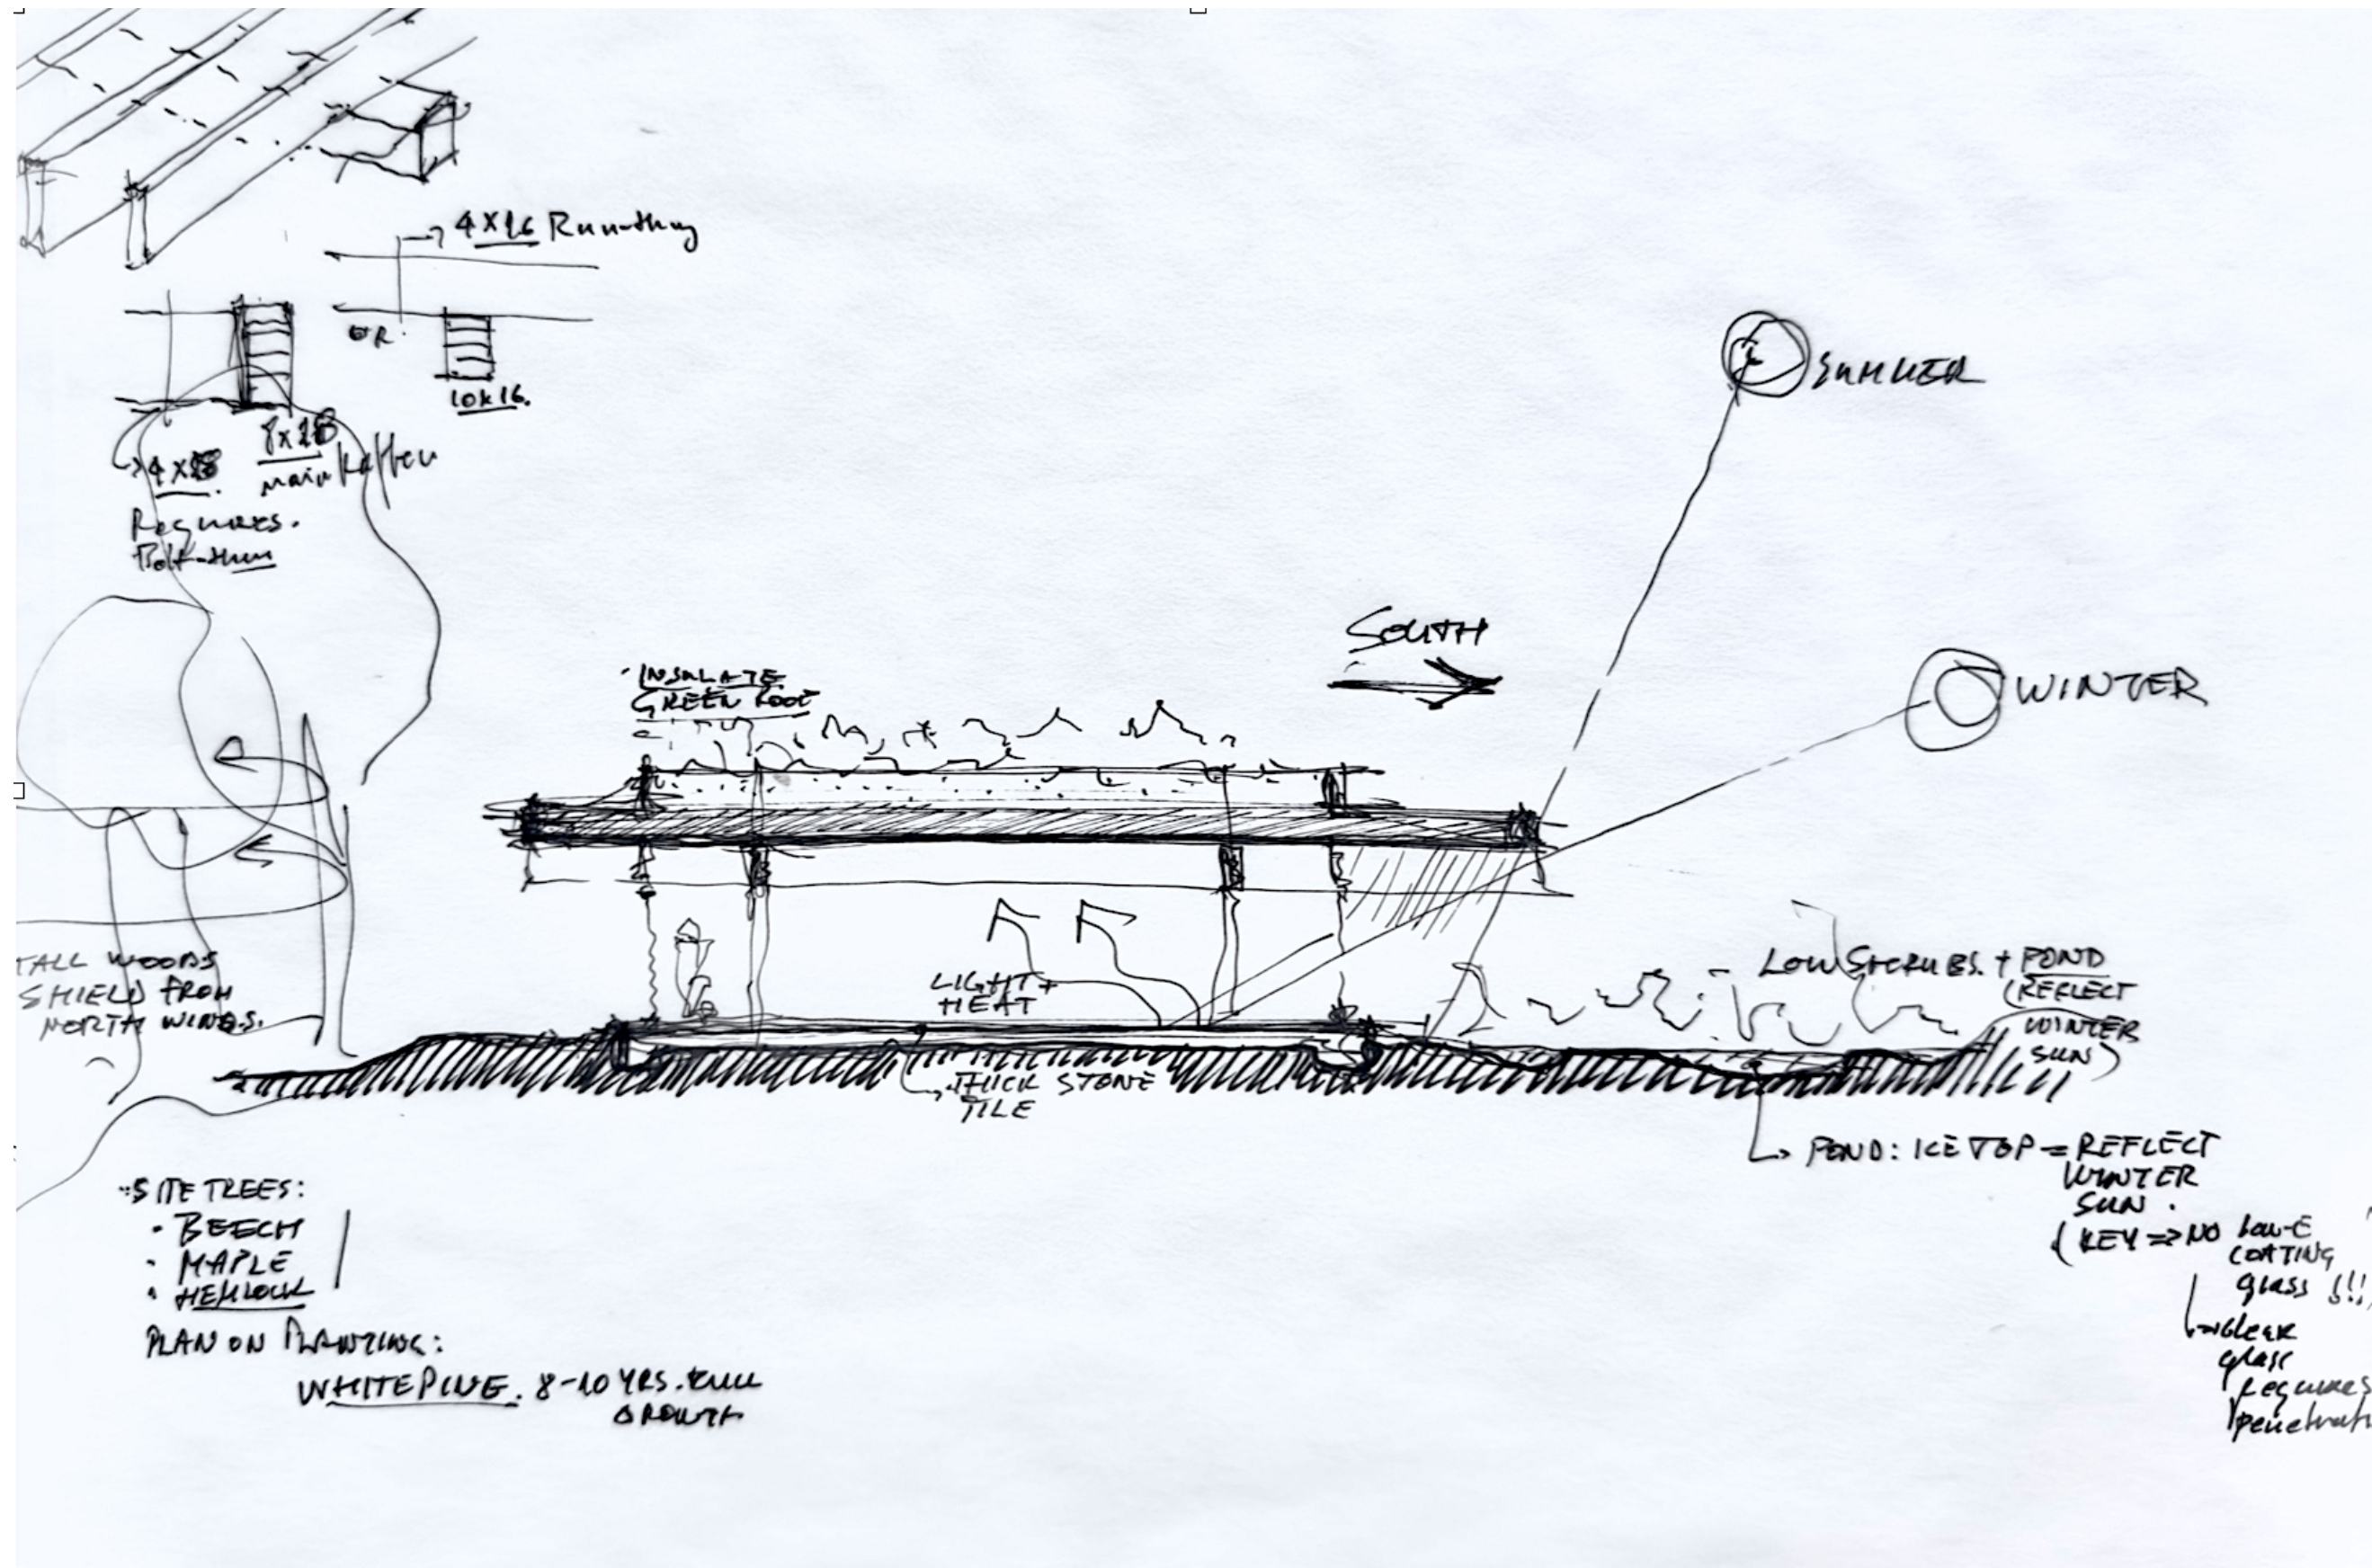 4X16 Run-thru
OR.
10x16.
8x18
4x18
main Rafter
Requires.
Bolt-thru
SUMMER
SOUTH
WINTER
INSULATE
GREEN ROOF
TALL WOODS
SHIELD FROM
NORTH WINDS.
LIGHT +
HEAT
LOW SHRUBS. + POND
(REFLECT
WINTER
SUN)
THICK STONE
TILE
POND: ICE TOP = REFLECT
WINTER
SUN.
(KEY => NO Low-E
COATING
glass !!!
clear
glass
Requires
SITE TREES:
• BEECH
• MAPLE
• HEMLOCK
PLAN ON PLANTING:
WHITE PINE. 8-10 YRS. FULL
GROWTH